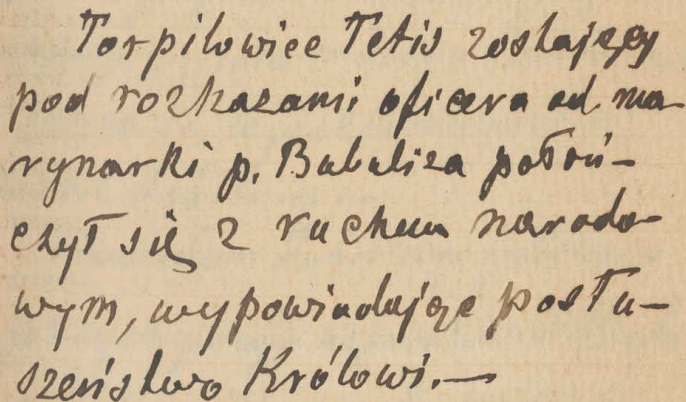 Torpilowiec Tetis zostający
pod rozkazami oficera od ma-
rynarki p. Bubuliza połoń-
czył się z ruchem narodo-
wym, wypowiadając posłu-
szeństwo Królowi.—